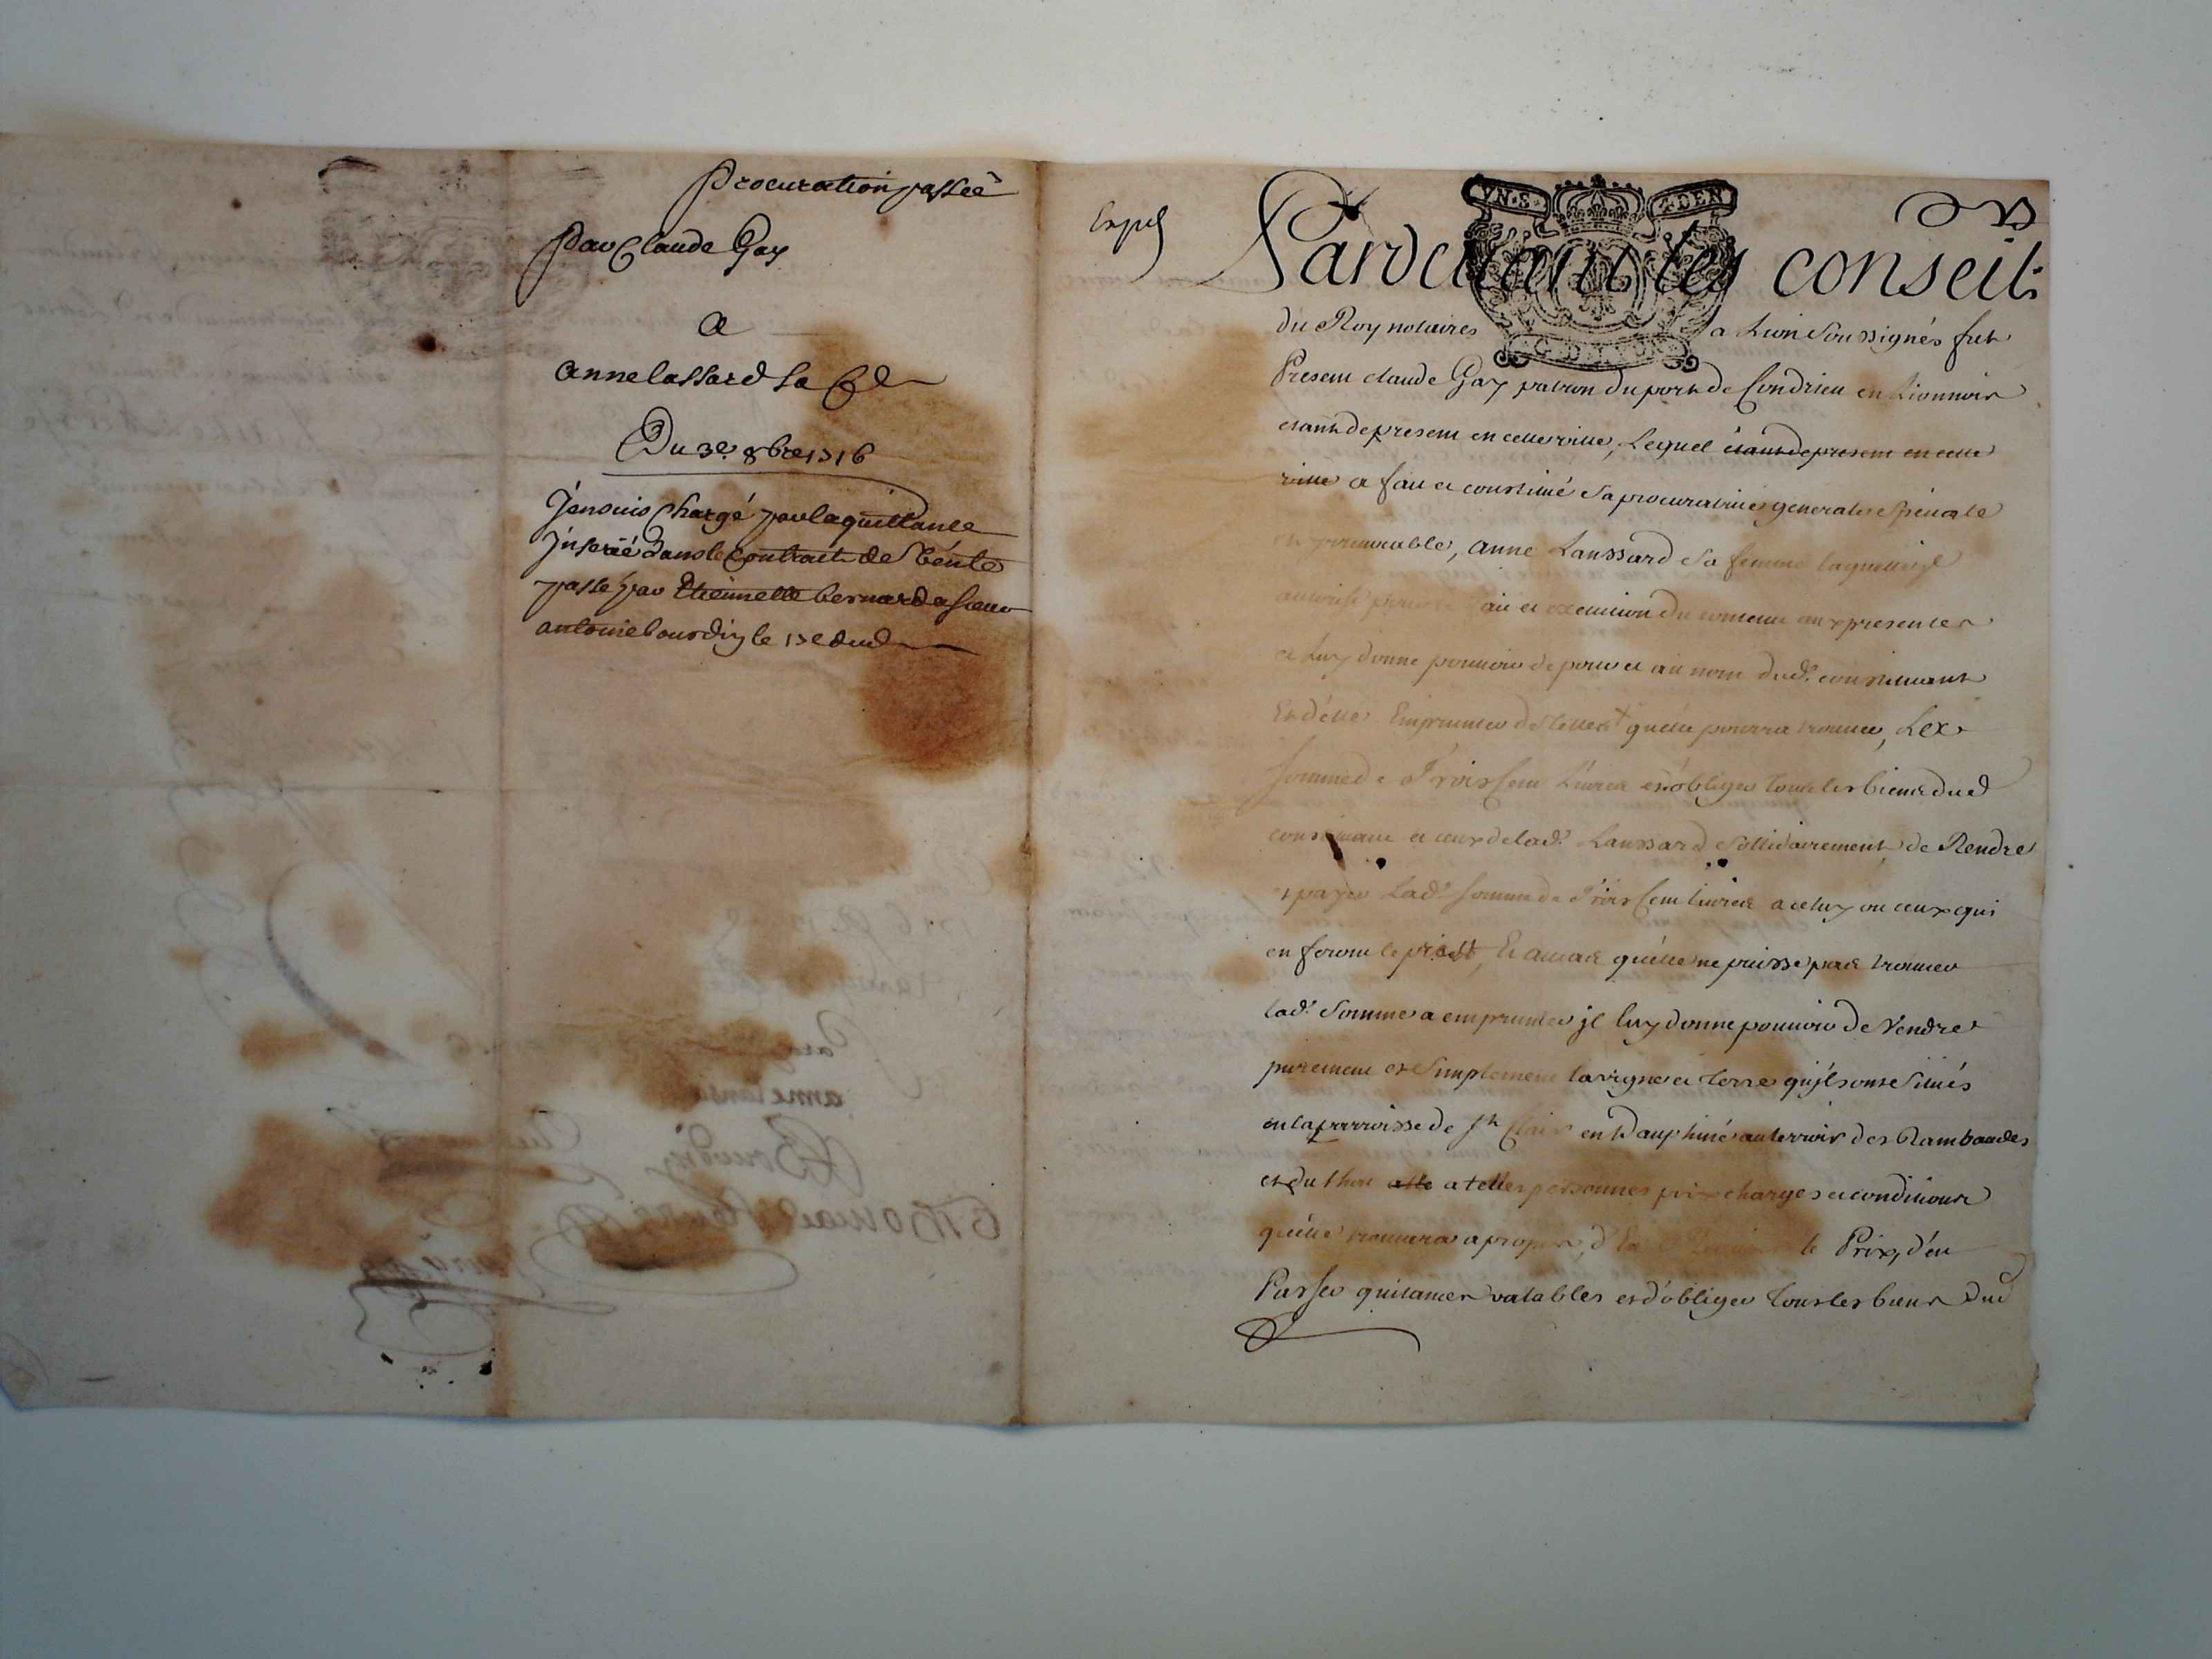 Procuration passée
par Claude Gay
a
anne lassard sa f e
Du 3e. 8bre 1716
J'en suis chargé par la quittance
jnserée dans le contract de Vente
passé par Etiennette bernard a sieur
antoine bourdin le 13e dud
Expé
Pardevant les conseils
VN.S. 4.DEN
G. DE LYON
du Roy notaires a Lion soussignés fut
Present claude Gay patron du port de Condrieu en Lionnois
etant de present en cette ville, Lequel étant de present en cette
ville a fait et constitué sa procuratrice generale et speciale
et irrevocable, anne Laussard sa femme laquelle jl
autorise pour le fait et execution du contenu aux presentes
et Luy donne pouvoir de pour et au nom dud. constituant
Et d'elle Emprunter de telles + qu'elle pourra trouver, Lex
somme de Trois Cent Livres et d'obliger tous les biens dud
constituant et ceux de lad. Laussard sollidairement, de Rendre
et payer Lad. somme de Trois Cent Livres a celuy ou ceux qui
en feront le prest, Et au cas qu'elle ne puisse pas trouver
lad. Somme a emprunter jl luy donne pouvoir de Vendre
purement et simplement la vigne et terre qu'jls ont situés
en la parroisse de St Clair en Dauphiné au terroir des Rambaudes
et du thou a telles personnes prix charges et conditions
qu'elle trouvera a propos, d'En le Prix, d'en
Passer quitances valables et d'obliger tous les biens dud